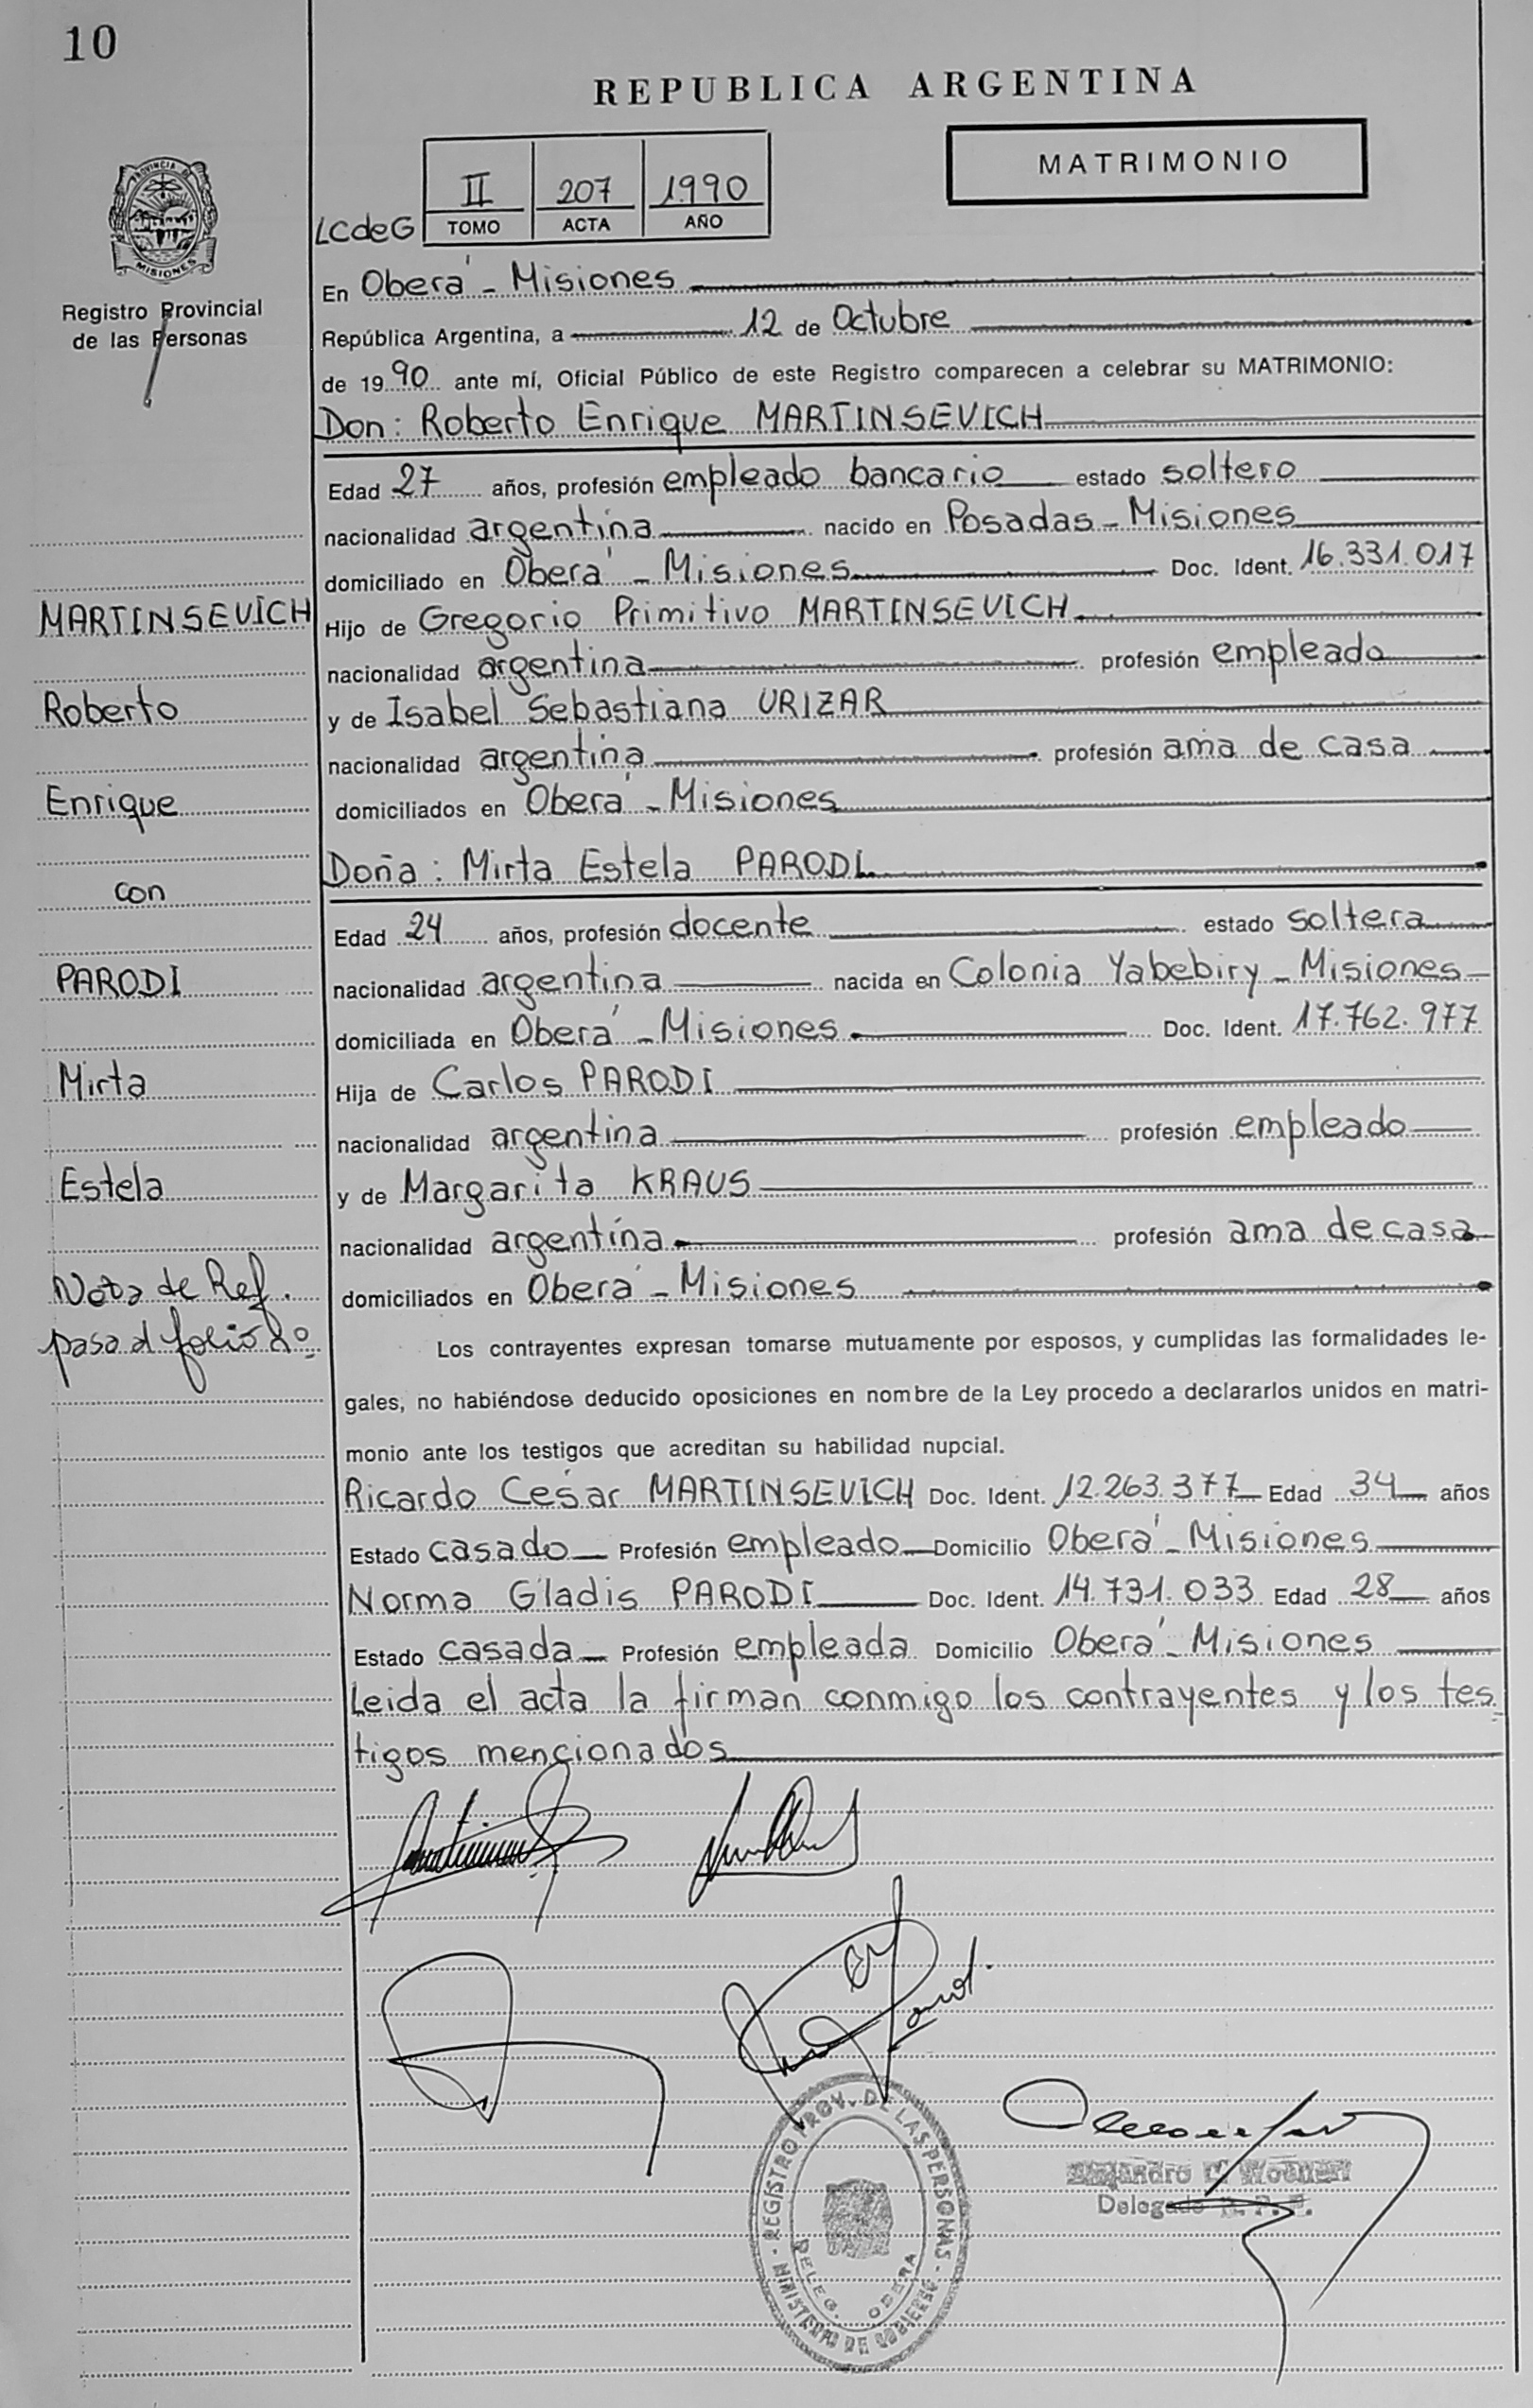 10
REPUBLICA ARGENTINA
MATRIMONIO
II 207 1990
TOMO ACTA AÑO
LCdeG
PROVINCIA DE
MISIONES
Registro Provincial
de las Personas
En Oberá - Misiones
República Argentina, a 12 de Octubre
de 1990 ante mí, Oficial Público de este Registro comparecen a celebrar su MATRIMONIO:
Don: Roberto Enrique MARTINSEVICH
Edad 27 años, profesión empleado bancario estado soltero
nacionalidad argentina nacido en Posadas - Misiones
domiciliado en Oberá - Misiones Doc. Ident. 16.331.017
Hijo de Gregorio Primitivo MARTINSEVICH
nacionalidad argentina profesión empleado
y de Isabel Sebastiana URIZAR
nacionalidad argentina profesión ama de casa
domiciliados en Oberá - Misiones
Doña: Mirta Estela PARODI
Edad 24 años, profesión docente estado soltera
nacionalidad argentina nacida en Colonia Yabebiry - Misiones
domiciliada en Oberá - Misiones Doc. Ident. 17.762.977
Hija de Carlos PARODI
nacionalidad argentina profesión empleado
y de Margarita KRAUS
nacionalidad argentina profesión ama de casa
domiciliados en Oberá - Misiones
Los contrayentes expresan tomarse mutuamente por esposos, y cumplidas las formalidades le-
gales, no habiéndose deducido oposiciones en nombre de la Ley procedo a declararlos unidos en matri-
monio ante los testigos que acreditan su habilidad nupcial.
Ricardo César MARTINSEVICH Doc. Ident. 12.263.377 Edad 34 años
Estado casado Profesión empleado Domicilio Oberá - Misiones
Norma Gladis PARODI Doc. Ident. 14.731.033 Edad 28 años
Estado casada Profesión empleada Domicilio Oberá - Misiones
Leida el acta la firman conmigo los contrayentes y los tes
tigos mencionados
MARTINSEVICH
Roberto
Enrique
con
PARODI
Mirta
Estela
Nota de Ref.
pasa al folio
REGISTRO PROV. DE LAS PERSONAS - MINISTERIO DE GOBIERNO
DELEG. OBERA
Alejandro
Delegado R. P. P.